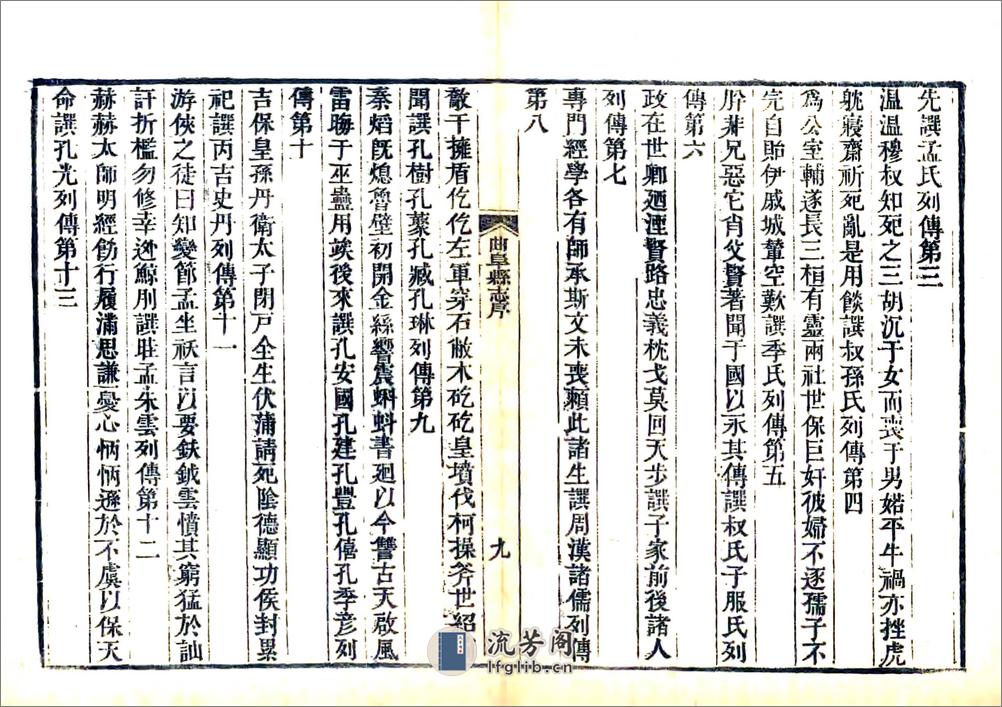 先譔孟氏列傳第三
溫溫穆叔知死之三胡沉于女而喪于男婼平牛禍亦挫虎
躭寢齋祈死亂是用餤譔叔孫氏列傳第四
爲公室輔遂長三桓有靈兩社世保巨奸彼婦不逐孺子不
完自貽伊戚城輦空歎譔季氏列傳第五
肸非兄惡它肖父賢著聞于國以永其傳譔叔氏子服氏列
傳第六
政在世卿廼湮賢路忠義枕戈莫回天步譔子家前後諸人
列傳第七
專門經學各有師承斯文未喪賴此諸生譔周漢諸儒列傳
第八
曲阜縣志序
九
敵干擁盾仡仡左軍穿石敝木矻矻皇墳伐柯操斧世紹
聞譔孔樹孔藂孔臧孔琳列傳第九
秦熖旣熄魯壁初開金絲響震蝌蚪書廻以今讐古天啟風
雷晦于巫蠱用竢後來譔孔安國孔建孔豐孔僖孔季彥列
傳第十
吉保皇孫丹衛太子閉戸全生伏蒲請死陰德顯功侯封累
祀譔丙吉史丹列傳第十一
游俠之徒曰知變節孟坐祅言以要鈇鉞雲憤其窮猛於訕
訐折檻勿修幸逊鯨刖譔眭孟朱雲列傳第十二
赫赫太師明經飭行履滿思謙憂心怲怲遜於不虞以保天
命譔孔光列傳第十三
流芳阁
lfglib.cn